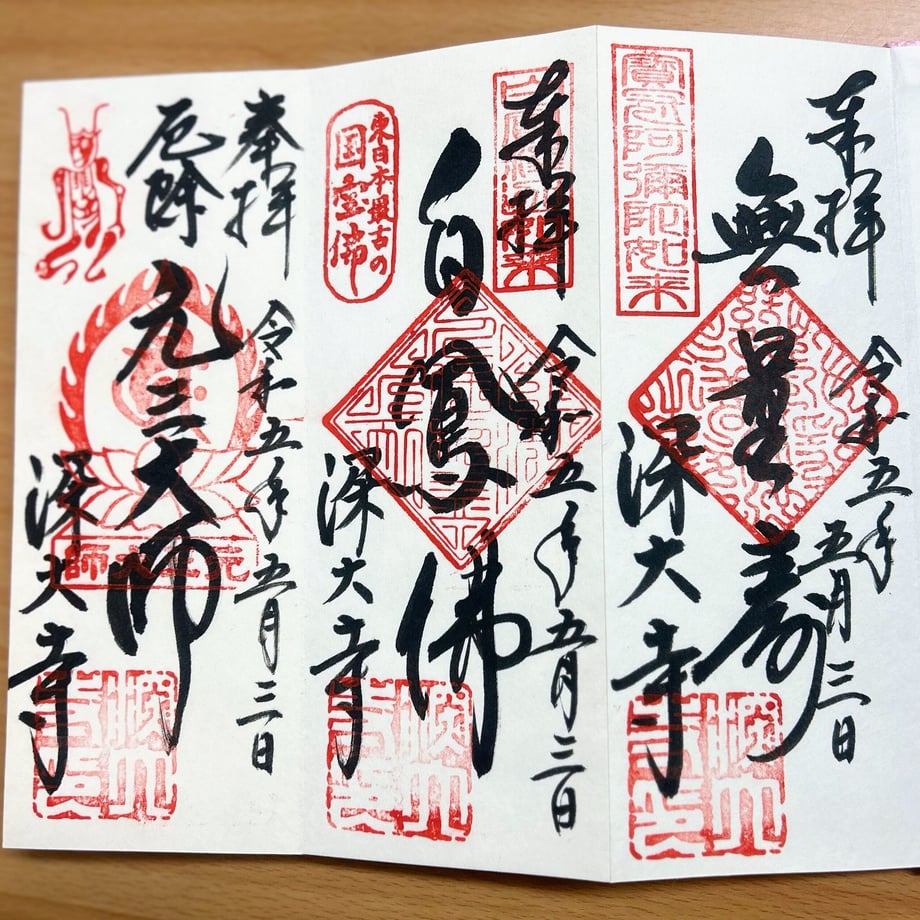 奉拝
令和五年
五月三日
無量壽
寶冠阿彌陀如来
深大寺
奉拝
令和五年五月三日
白鳳佛
東日本最古の
国宝佛
深大寺
奉拝
令和五年五月三日
厄除
元三大師
元三大師
深大寺